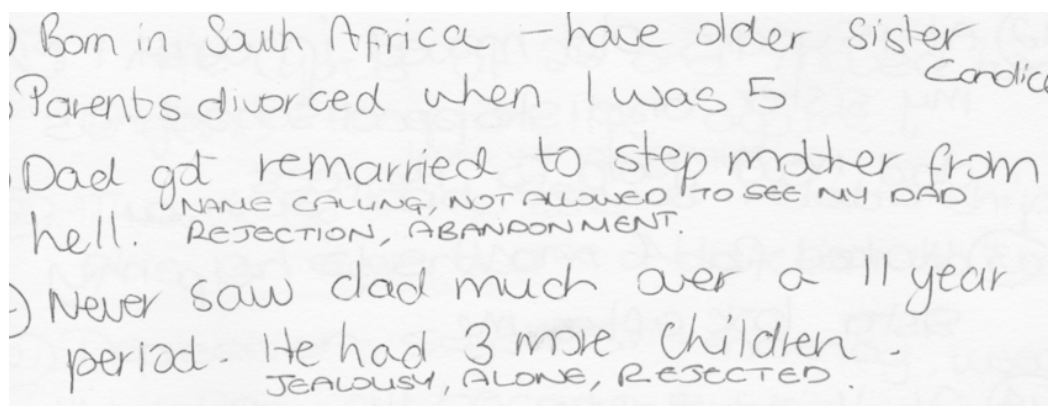 ) Born in South Africa - have older sister
Candice
) Parents divorced when I was 5
) Dad got remarried to step mother from
NAME CALLING, NOT ALLOWED TO SEE MY DAD
hell. REJECTION, ABANDONMENT.
) Never saw dad much over a 11 year
period. He had 3 more Children.
JEALOUSY, ALONE, REJECTED.